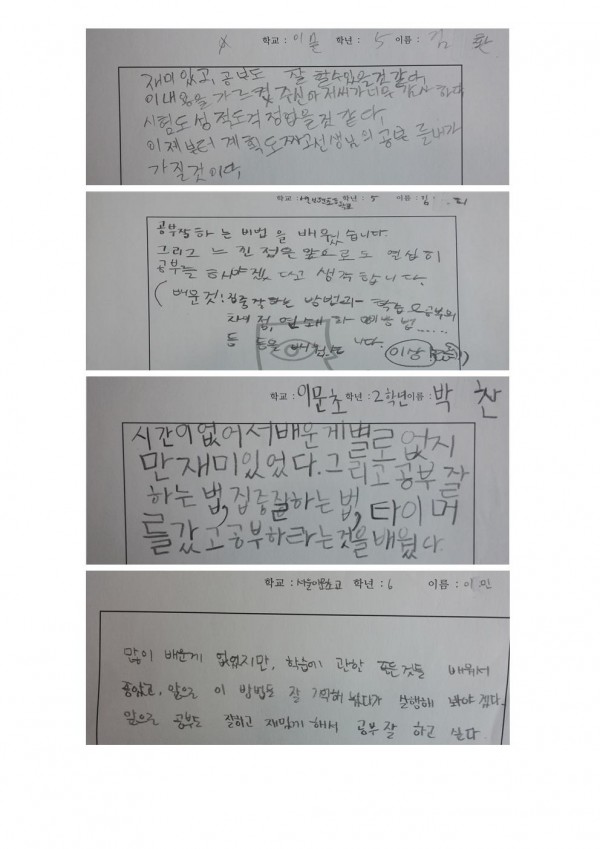 학교 : 이문 학년 : 5 이름 : 김 환
재미있고, 공부도 잘 할수있을것 같다.
이내용을 가르쳐 주신 아저씨가 너무 감사하다
시험도 성적도 걱정없을것 같다.
이제부터 계획도짜고 선생님의 공부 를 내가
가질것이다.
학년 : 5 이름 : 김 희
공부잘하는 비법을 배웠습니다.
그리고 느낀점은 앞으로도 열심히
공부를 해야겠다고 생각합니다.
(배운것 : 집중잘하는 방법과 학습
등 등을 배웠 니다.
이상
학교 : 이문초 학년 : 2학년 이름 : 박 찬
시간이없어서배운게별로없지
만재미있었다.그리고공부잘
하는법,집중잘하는법,타이머
를갔고공부하라는것을배웠다.
학교 : 서울이문초교 학년 : 6 이름 : 이 민
많이 배운게 없었지만, 학습에 관한 모든것들 배워서
좋았고, 앞으로 이 방법도 잘 기억해 놨다가 실행해 봐야 겠다.
앞으로 공부도 잘하고 재밌게 해서 공부 잘 하고 싶다.